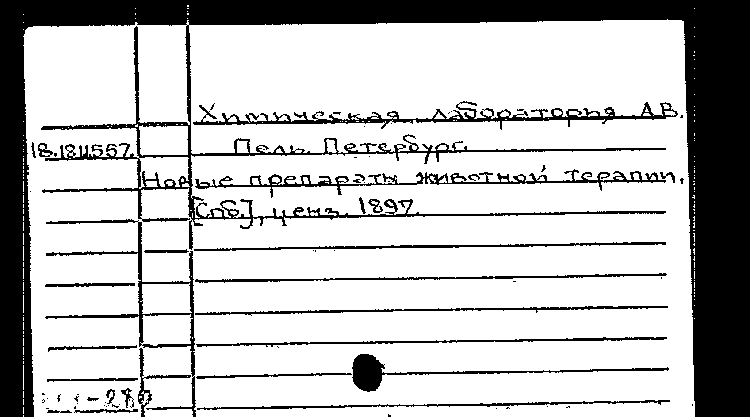 Химическая лаборатория А.В.
18.184.557. Пель. Петербург.
Новые препараты животной терапии.
[Спб.], ценз. 1897.
-280